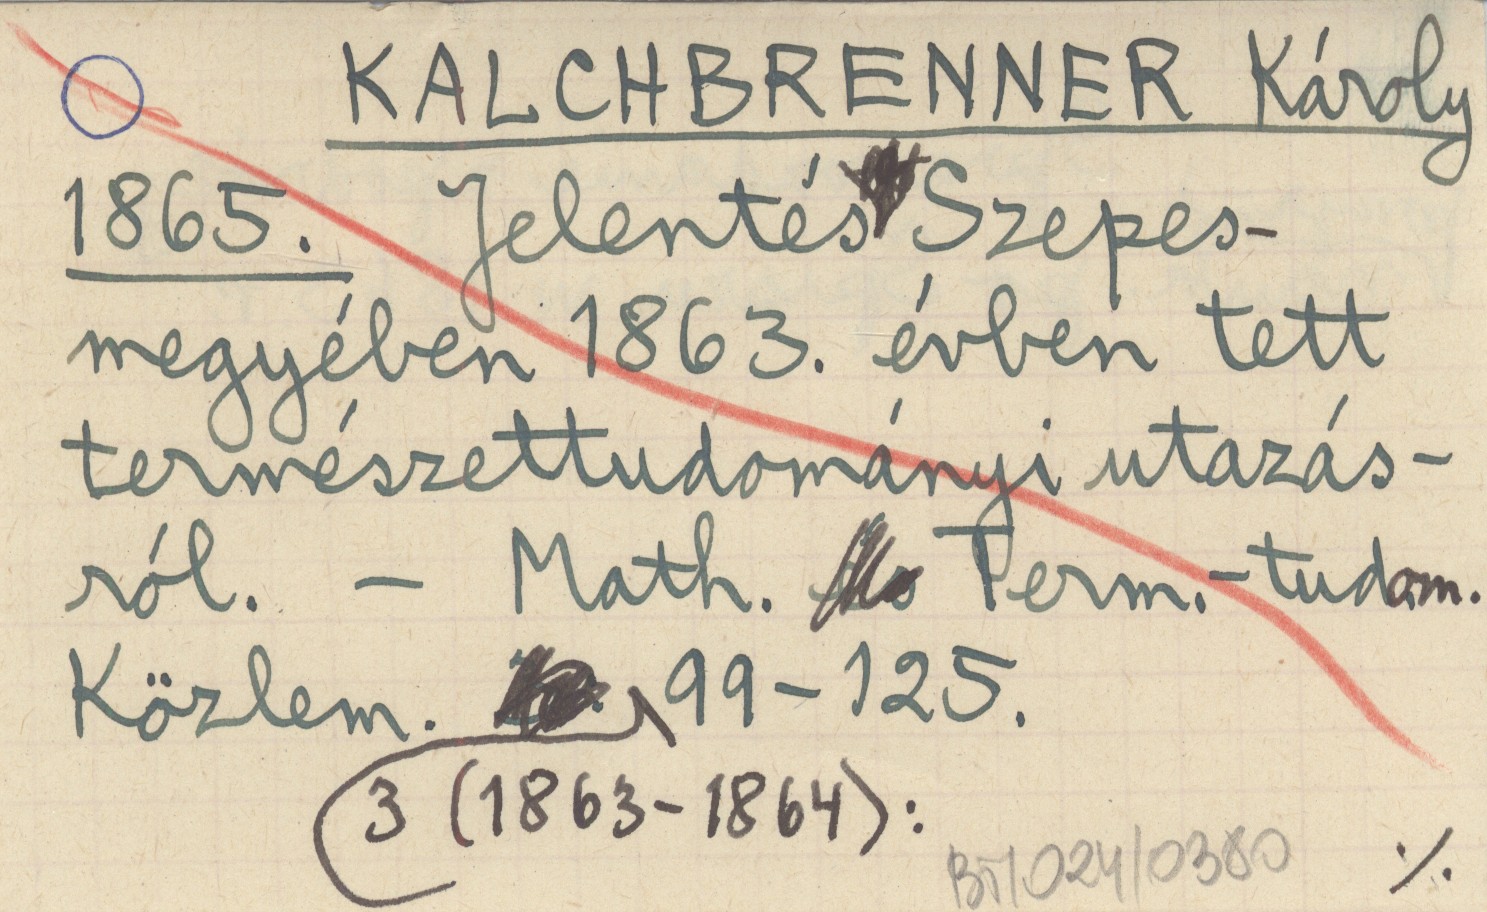 KALCHBRENNER Károly
1865. Jelentés Szepes-
megyében 1863. évben tett
természettudományi utazás-
ról. - Math. Term.-tudom.
Közlem. 99-125.
3 (1863-1864):
BT/024/0380 ./.